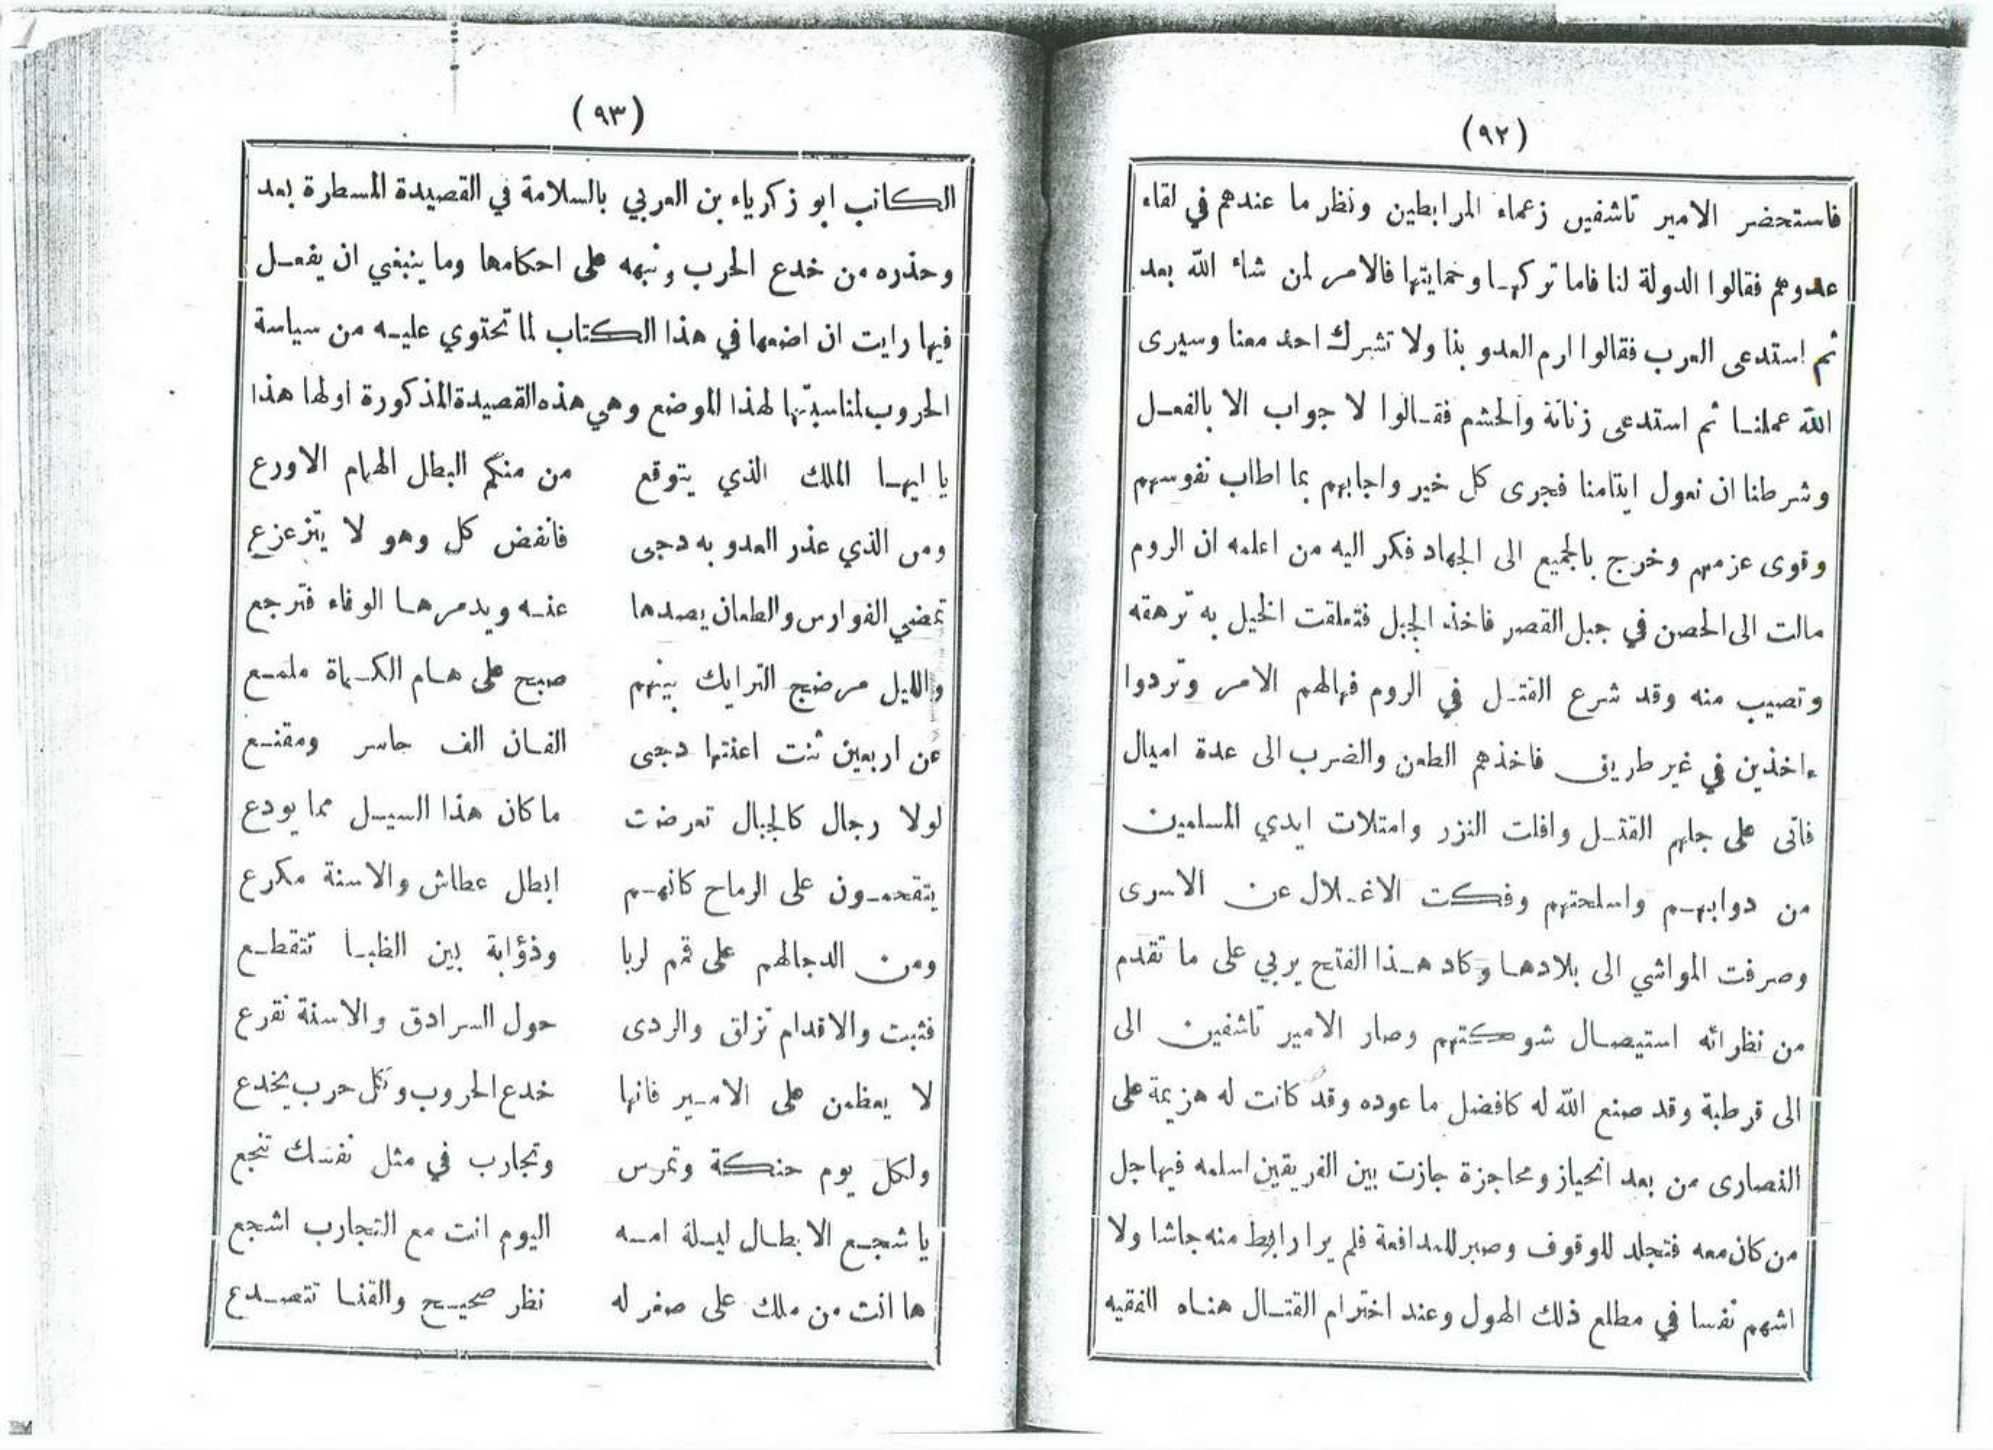 (٩٢)
فاستحضر الامير تاشفين زعماء المرابطين ونظر ما عندهم في لقاء
عدوهم فقالوا الدولة لنا فاما تركها وحمايتها فالامر لمن شاء الله بعد
ثم استدعى العرب فقالوا ارم العدو بنا ولا تشرك احد معنا وسيرى
الله عملنا ثم استدعى زناتة والحشم فقالوا لا جواب الا بالفعل
وشرطنا ان نعول ايتامنا فجرى كل خير واجابهم بما اطاب نفوسهم
وقوى عزمهم وخرج بالجميع الى الجهاد فكر اليه من اعلمه ان الروم
مالت الى الحصن في جبل القصر فاخذ الجبل فتعلقت الخيل به ترهقه
وتصيب منه وقد شرع القتل في الروم فهالهم الامر وتردوا
ءاخذين في غير طريق فاخذهم الطعن والضرب الى عدة اميال
فاتى على جلهم القتل وافلت النزر وامتلات ايدي المسلمين
من دوابهم واسلحتهم وفكت الاغلال عن الاسرى
وصرفت المواشي الى بلادها وكاد هذا الفتح يربي على ما تقدم
من نظرائه استيصال شوكتهم وصار الامير تاشفين الى
الى قرطبة وقد صنع الله له كافضل ما عوده وقد كانت له هزيمة على
النصارى من بعد انحياز ومحاجزة جازت بين الفريقين اسلمه فيها جل
من كان معه فتجلد للوقوف وصبر للمدافعة فلم ير ا رابط منه جاشا ولا
اشهم نفسا في مطلع ذلك الهول وعند اخترام القتال هناه الفقيه
(٩٣)
الكاتب ابو زكرياء بن العربي بالسلامة في القصيدة المسطرة بعد
وحذره من خدع الحرب ونبهه على احكامها وما ينبغي ان يفعل
فيها رايت ان اضعها في هذا الكتاب لما تحتوي عليه من سياسة
الحروب لمناسبتها لهذا الموضع وهي هذه القصيدة المذكورة اولها هذا
يا ايها الملك الذي يتوقع من منكم البطل الهمام الاورع
ومن الذي عذر العدو به دجى فانفض كل وهو لا يتزعزع
تمضي الفوارس والطعان يصدها عنه ويدمرها الوفاء فترجع
والليل مرضج الترايك بينهم صبح على هام الكماة ملمع
عن اربعين ثنت اعنتها دجى الفان الف حاسر ومقنع
لولا رجال كالجبال تعرضت ما كان هذا السيل مما يودع
يتقحمون على الرماح كانهم ابطل عطاش والاسنة مكرع
ومن الدجالهم على قمم لربا وذؤابة بين الظبا تتقطع
فثبت والاقدام تزلق والردى حول السرادق والاسنة تقرع
لا يعظمن على الامير فانها خدع الحروب وكل حرب يخدع
ولكل يوم حنكة وتمرس وتجارب في مثل نفسك تنجع
يا شجع الابطال ليلة امسه اليوم انت مع التجارب اشجع
ها انت من ملك على صغر له نظر صحيح والقنا تتصدع